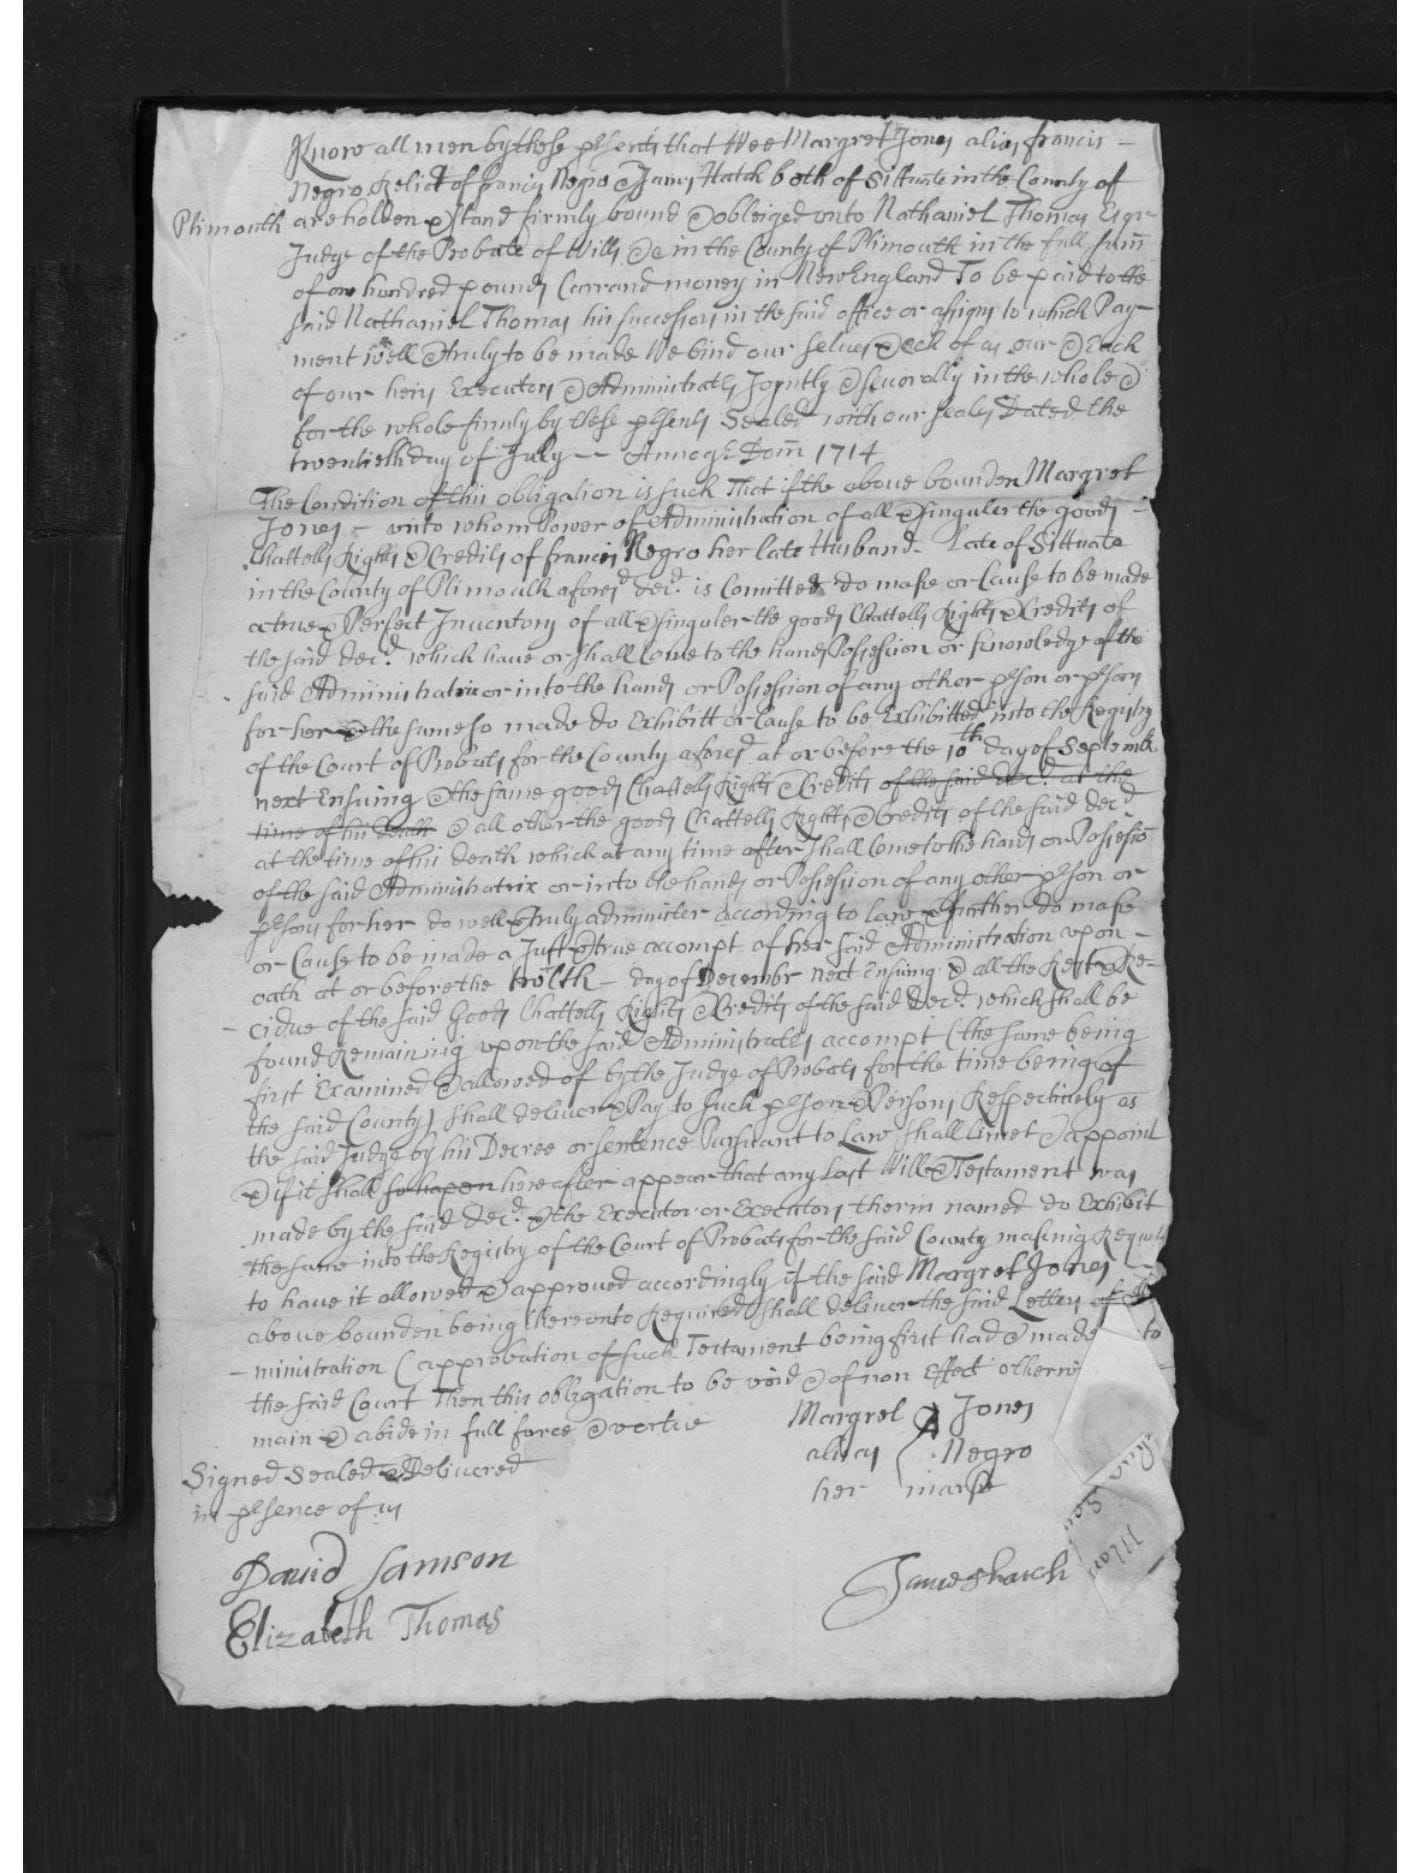 Know all men by these psents that Wee Margret Jones alias francis -
Negro Relict of francis Negro & James Hatch both of Sittuate in the County of
Plimouth are holden & stand firmly bound & obleiged unto Nathaniel Thomas Esqr
Judge of the Probate of Wills &c in the County of Plimouth in the full sum
of one hundred pounds Currand money in New England To be paid to the
said Nathaniel Thomas his successors in the said office or assigns to which Pay-
ment well & truly to be made We bind our selves & each of us our & Each
of our heirs Executors & Administratrs Joyntly & severally in the whole &
for the whole firmly by these psents Sealed with our seales Dated the
twentieth day of July -- Annoqe Dom 1714
The Condition of this obligation is such That if the above bounden Margret
Jones - unto whom Power of Administration of all & singuler the goods -
Chattells Rights & Credits of francis Negro her late Husband - Late of Sittuate
in the County of Plimouth aforesd decd. is Comitted do make or Cause to be made
a true & Perfect Inventory of all & singuler the goods Chattells Rights & Credits of
the said decd. which have or shall Come to the hands Possession or knowledge of the
said Administratrix or into the hands or Possession of any other pson or psons
for her & the same so made do Exhibitt or Cause to be Exhibitted into the Registry
of the Court of Probats for the County aforesd at or before the 10th day of Septembr
next Ensuing & the same goods Chattells Rights & Credits of the said decd. at the
time of his death & all other the goods Chattells Rights & Credits of the said decd
at the time of his death which at any time after shall Come to the hands or Possessio
of the said Administratrix or into the hands or Possession of any other pson or
psons for her do well & truly administer according to law & further do make
or Cause to be made a Just & true accompt of her said Administration upon -
oath at or before the twelth - day of Decembr next Ensuing & all the Rest & Re-
cidue of the said Goods Chattells Rights & Credits of the said Decd. which shall be
found Remaining upon the said Administratrs accompt (the same being
first Examined & allowed of by the Judge of Probats for the time being of
the said County) shall deliver & Pay to such pson & Persons Respectively as
the said Judge by his Decree or sentence Pursuant to Law shall Limet & appoint
& if it shall so hapen hereafter appear that any Last Will & Testament was
made by the said decd. & the Executor or Executors therin named do Exhibit
the same into the Registry of the Court of Probats for the said County making Request
to have it allowed & approved accordingly if the said Margret Jones -
above bounden being thereunto Required shall deliver the said Letters of Ad
- ministration (approbation of such Testament being first had & made to
the said Court Then this obligation to be void & of non Effect otherwi
main & abide in full force & vertue
Margret Jones
alias Negro
her mark
Signed Sealed & Delivered
in psence of us
David Samson
James hatch
Elizabeth Thomas